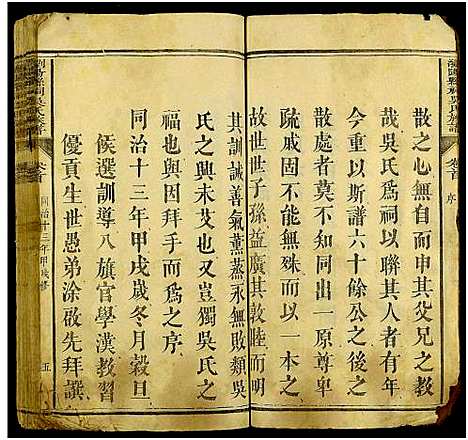 瀏陽縣祠吳氏族譜
卷首
序
散之心無自而申其父兄之教
哉吳氏爲祠以聯其人者有年
今重以斯譜六十餘公之後之
疏戚固不同而無殊而以一本之
故世世子孫益廣其敦睦而增
其訓誡善氣薰蒸永無敗類吳
氏之興未艾也又豈獨吳氏之
福也與因拜手而爲之序
同治十三年甲戌歲冬月穀旦
候選訓導八旗官學漢教習
優貢生世愚弟涂啟先拜撰
卷首
同治十三年甲戌修
五